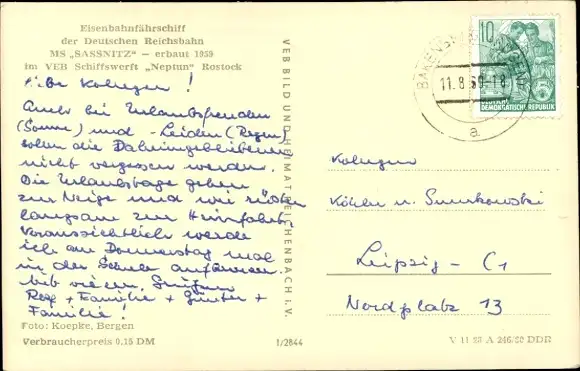 Eisenbahnfährschiff
der Deutschen Reichsbahn
MS „SASSNITZ“ – erbaut 1959
im VEB Schiffswerft „Neptun“ Rostock
Liebe Kollegen!
Auch bei Urlaubsfreuden
(Sonne) und -Leiden (Regen)
sollen die Daheimgebliebenen
nicht vergessen werden.
Die Urlaubstage gehen
zur Neige und wir rüsten
langsam zur Heimfahrt.
Voraussichtlich werde
ich am Donnerstag mal
in der Schule auftauchen.
Mit vielen Grüßen
+ Familie + Günter +
Familie!
Foto: Koepke, Bergen
Verbraucherpreis 0,15 DM
VEB BILD UND HEIMAT REICHENBACH I. V.
1/2844
10
DEUTSCHE
DEMOKRATISCHE REPUBLIK
11.8.60-18
a
Kollegen
Köhler u.
Leipzig - C1
Nordplatz 13
V 11 28 A 246/60 DDR